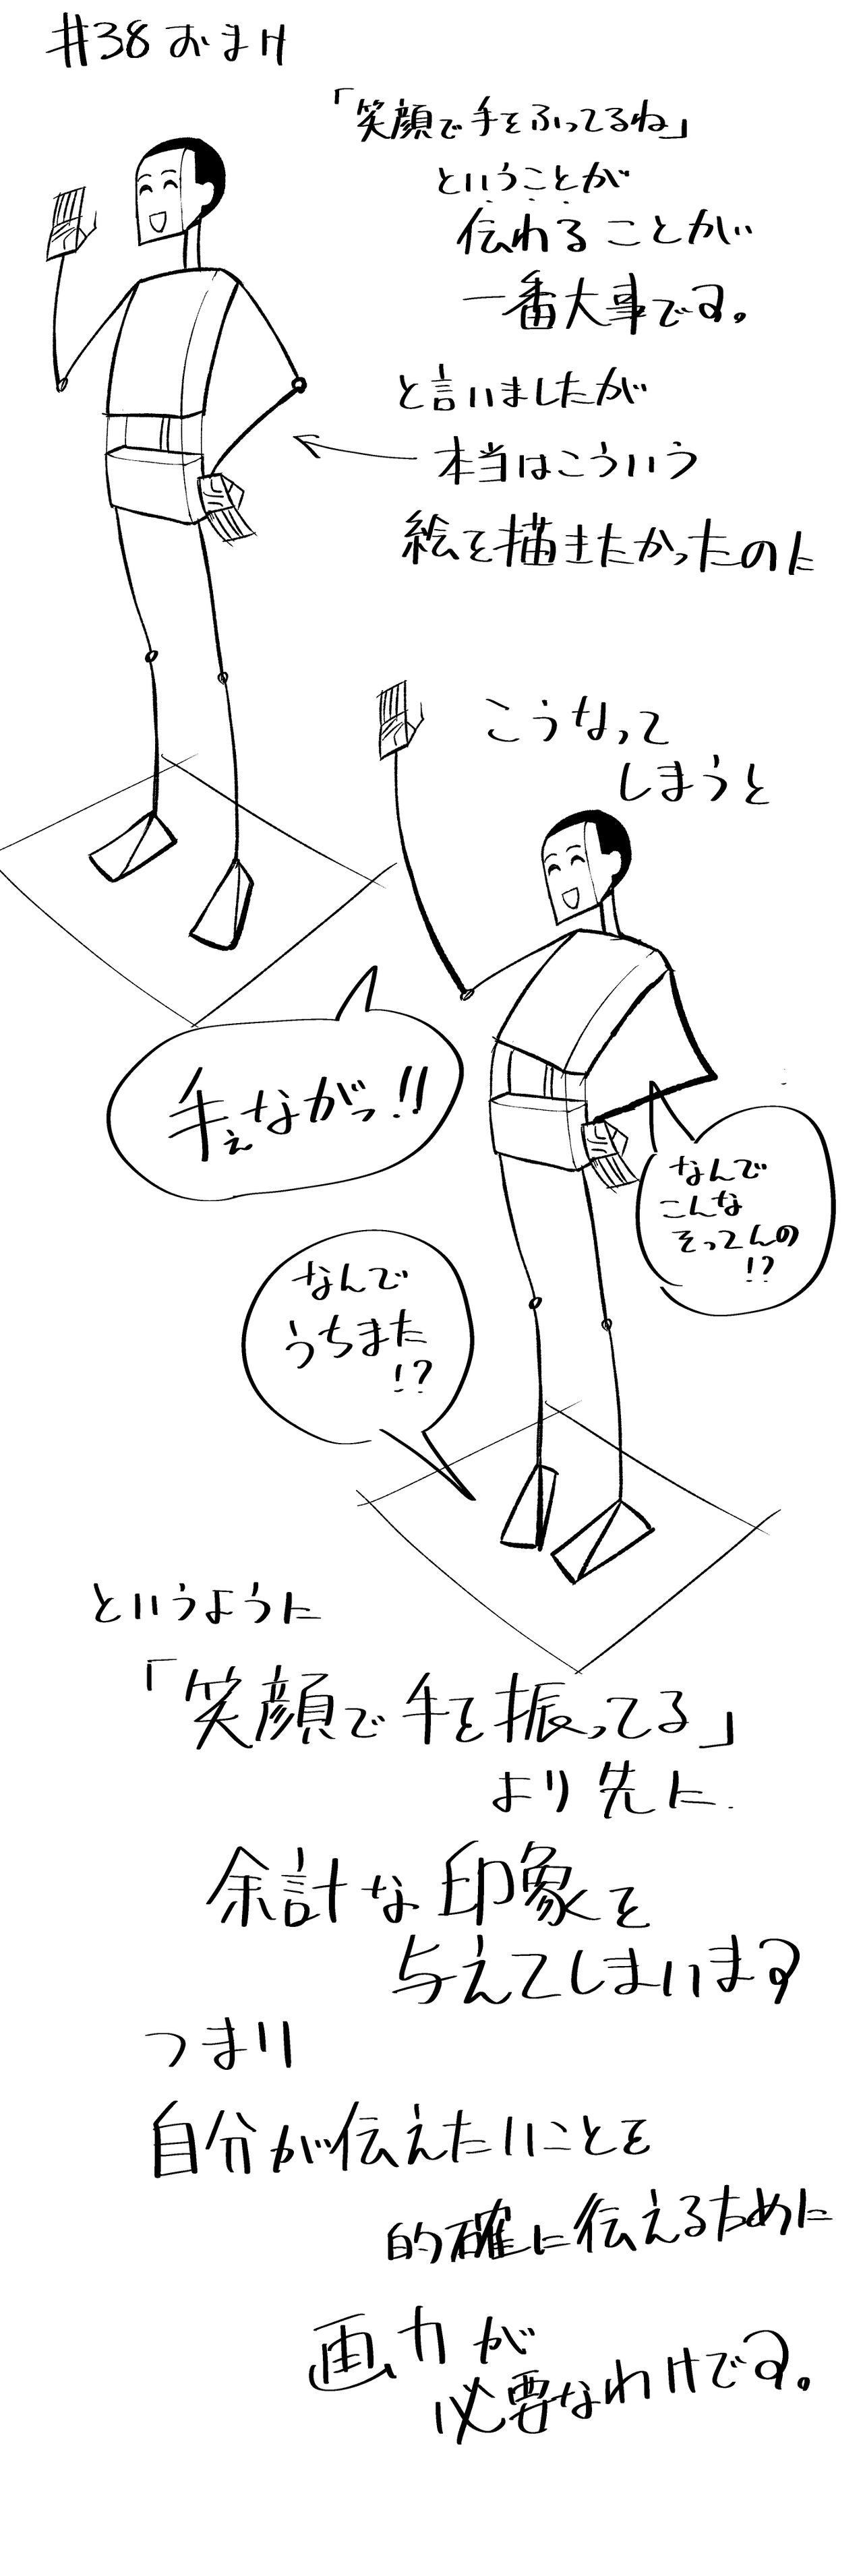 #38 おまけ
「笑顔で手をふってるね」
ということが
伝わることが
一番大事です。
と言いましたが
本当はこういう
絵を描きたかったのに
こうなって
しまうと
手ぇながっ!!
なんで
こんな
そってんの
!?
なんで
うちまた
!?
というように
「笑顔で手を振ってる」
より先に
余計な印象を
与えてしまいます
つまり
自分が伝えたいことを
的確に伝えるために
画力が
必要なわけです。